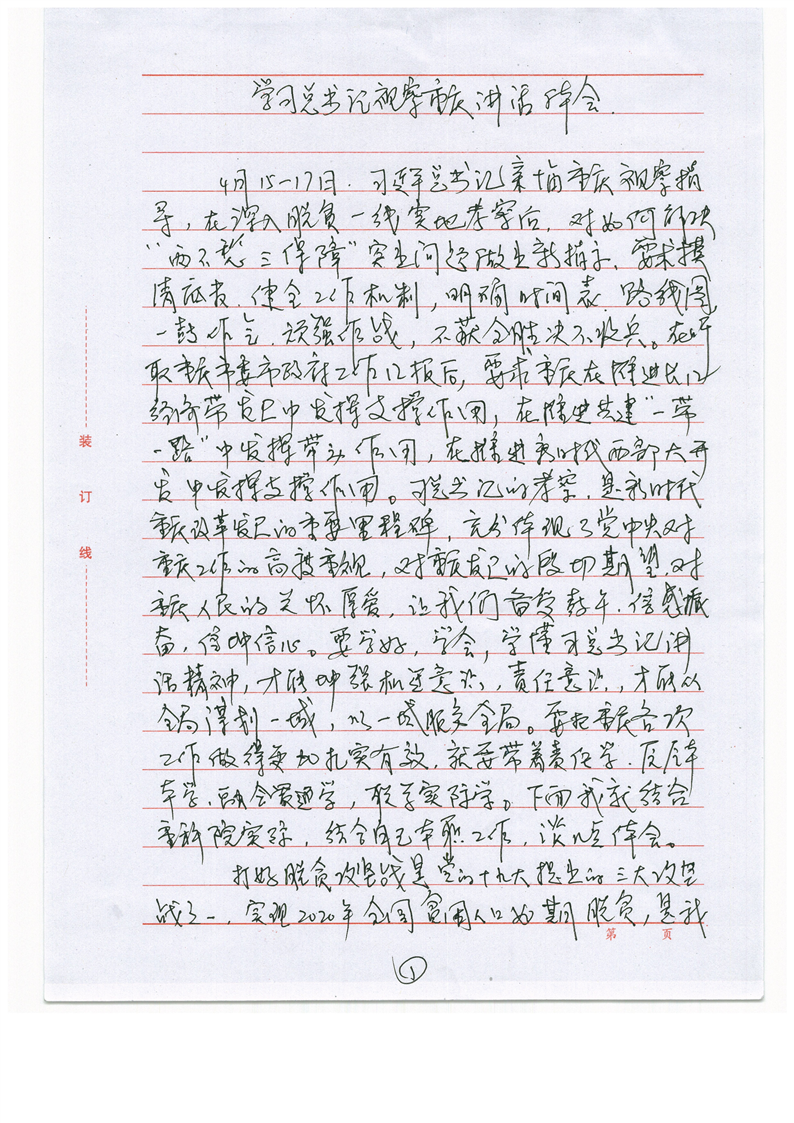 学习总书记视察重庆讲话体会
4月15-17日, 习近平总书记亲临重庆视察指
导，在深入脱贫一线实地考察后，对如何解决
“两不愁三保障”突出问题做出新指示，要求摸
清底数、健全工作机制，明确时间表、路线图，
一鼓作气、顽强作战，不获全胜决不收兵。在听
取重庆市委市政府工作汇报后，要求重庆在推进长江
经济带发展中发挥支撑作用，在推进共建“一带
一路”中发挥带动作用，在推进新时代西部大开
发中发挥支撑作用。习总书记的考察，是新时代
重庆改革发展的重要里程碑，充分体现了党中央对
重庆工作的高度重视，对重庆发展的殷切期望，对
重庆人民的关怀厚爱，让我们备受鼓午、倍感振
奋，倍增信心。要学好，学会，学懂习总书记讲
话精神，才能增强机遇意识，责任意识，才能从
全局谋划一域，以一域服务全局。要把重庆各项
工作做得更加扎实有效，就要带着责任学、反复
学，融会贯通学，联系实际学。下面我就结合
重科院实际，结合自己本职工作，谈几点体会。
打好脱贫攻坚战是党的十九大提出的三大攻坚
战之一，实现2020年全国贫困人口如期脱贫，是我
装
订
线
第 页
①